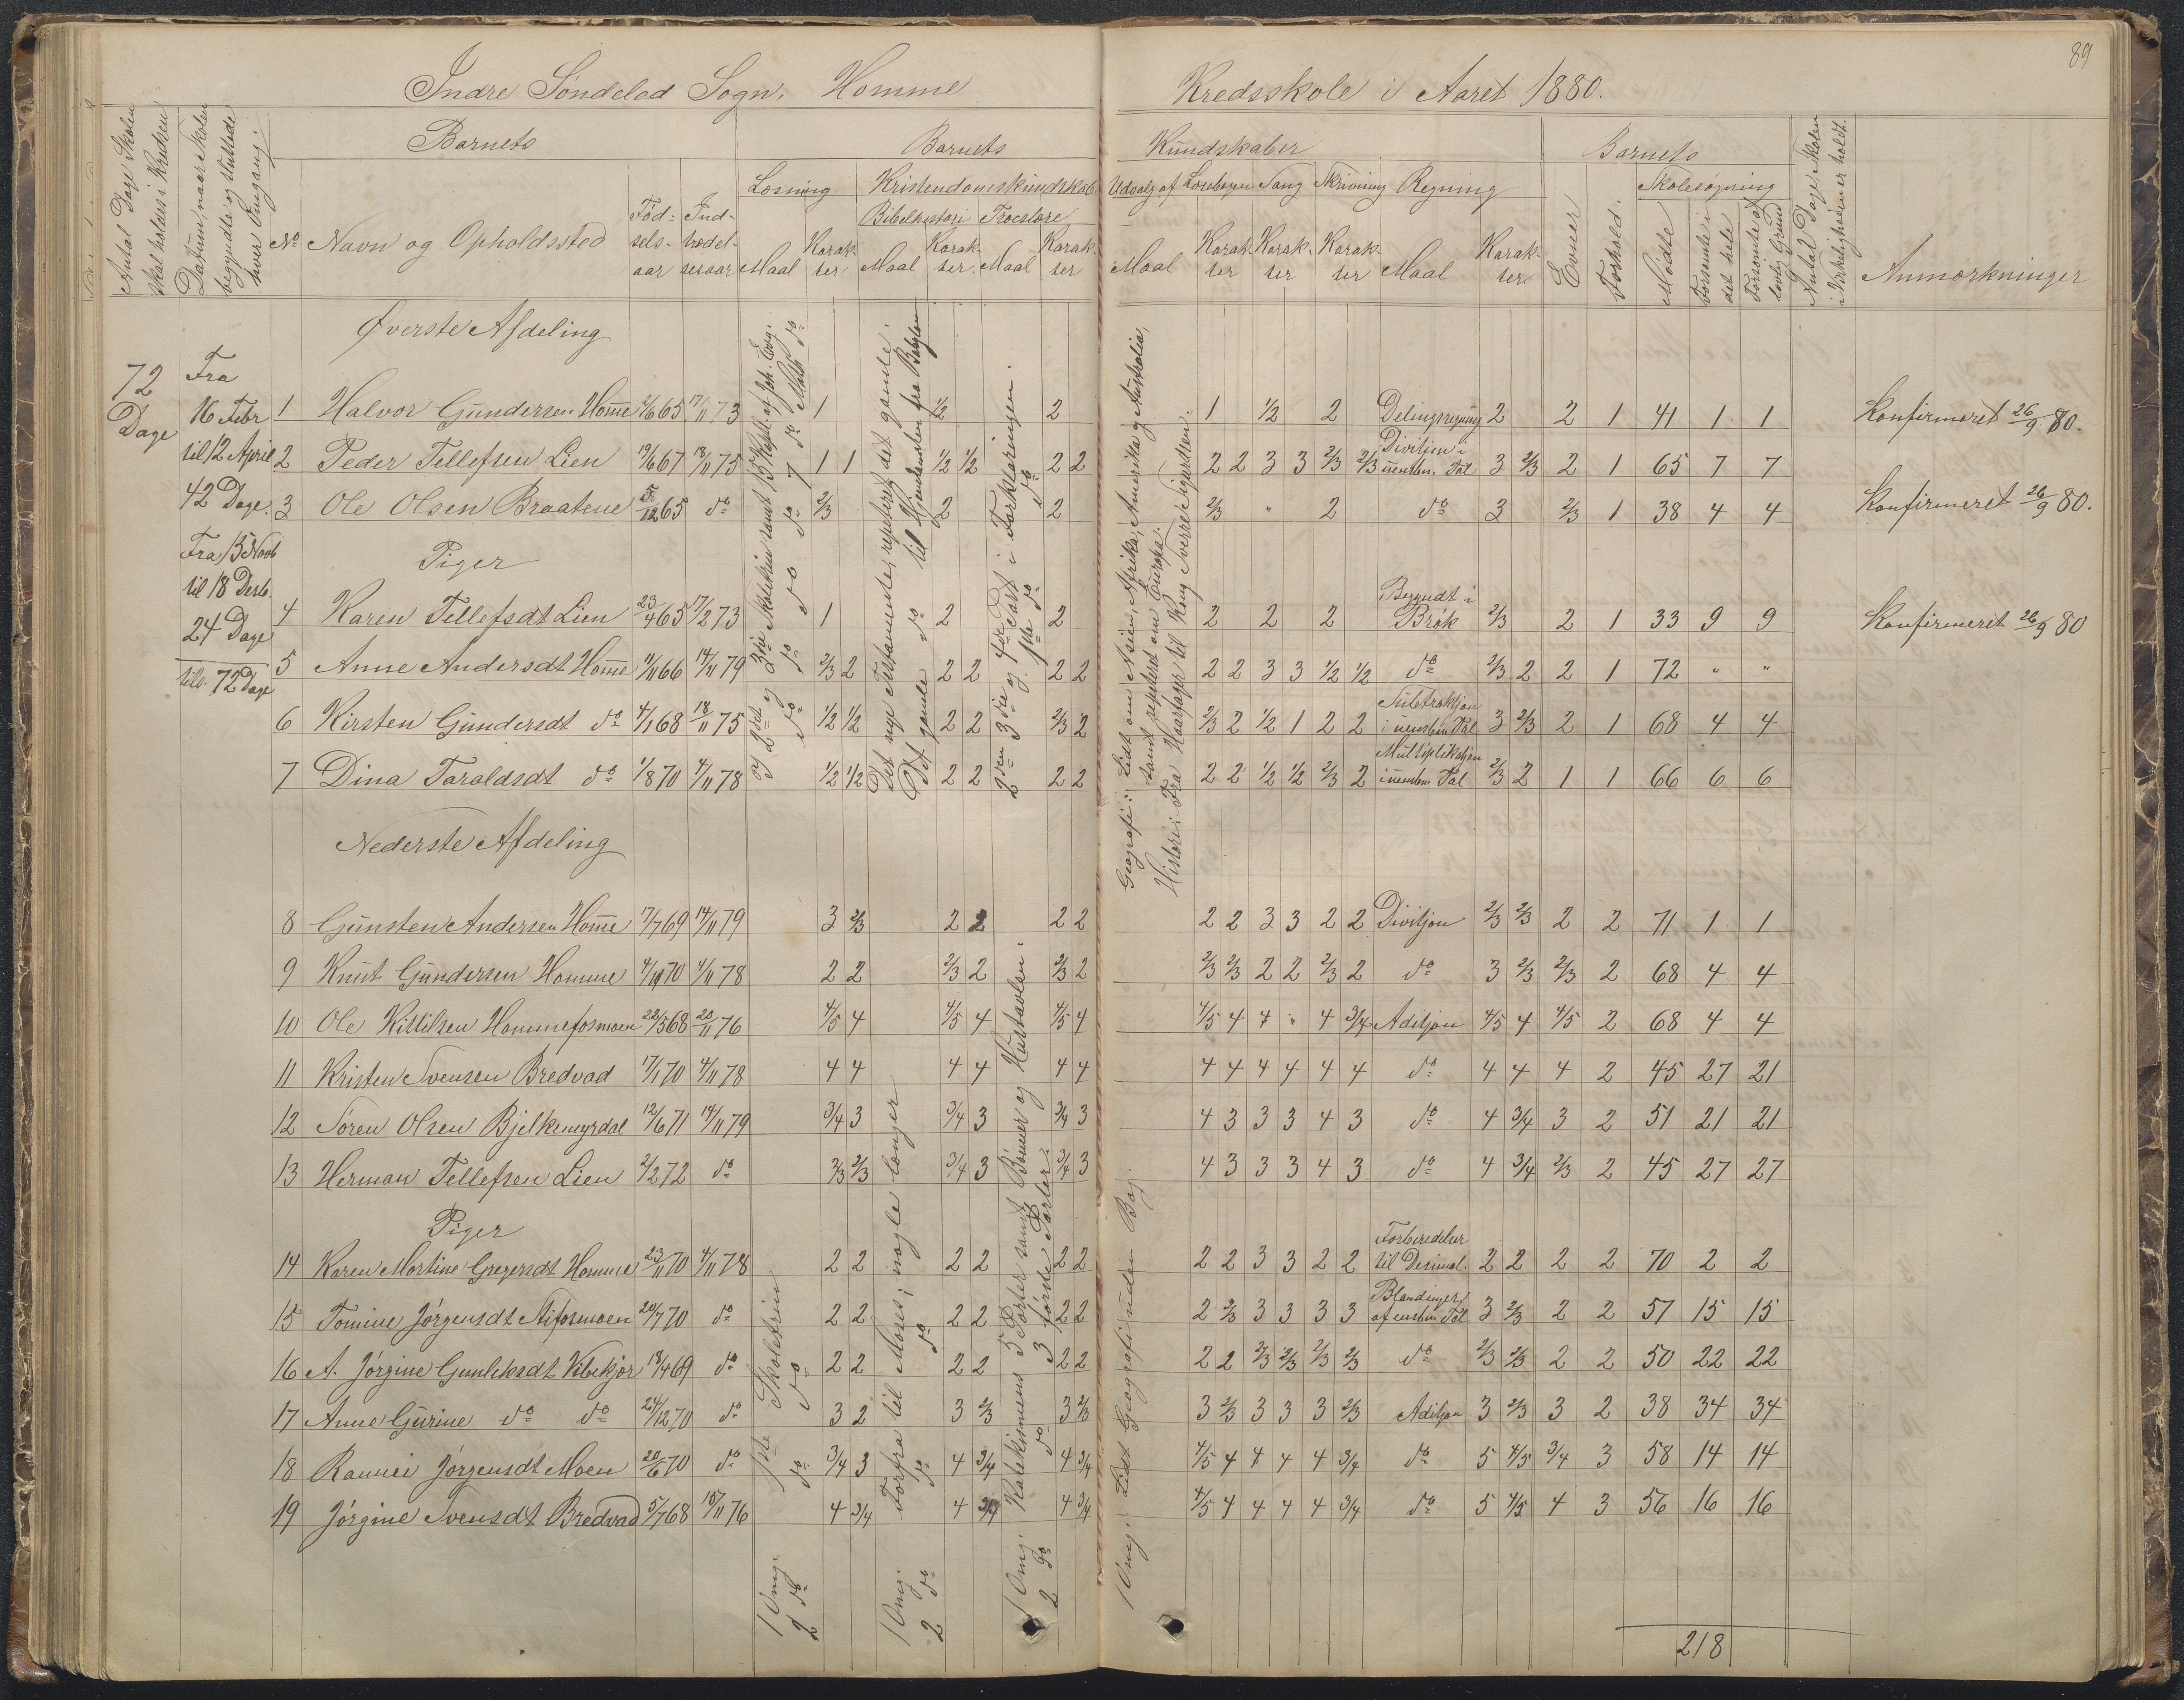 89
Indre Søndeled Sogn. Homme Kredsskole i Aaret 1880.
Antal Dage Skolen skal holdes i Kredsen
Datum, naar Skolen begyndte og sluttede hver Omgang.
Barnets
No Navn og Opholdssted
Fødselsaar
Indtrædelsesaar
Barnets Kundskaber
Læsning
Maal Karakter
Kristendomskundskab
Bibelhistorie Maal Karakter
Troeslære Maal Karakter
Udvalg af Læsebogen Maal Karakter
Sang Karakter
Skrivning Karakter
Regning Maal Karakter
Barnets
Evner
Forhold.
Skolesøgning
Mødte
Forsømte i det hele
Forsømte af lovlig Grund
Antal Dage Skolen i Virkeligheden er holdt.
Anmærkninger
72 Dage
Fra 16 Febr til 12 April 42 Dage.
Fra 15 Novb til 18 Desb. 24 Dage
tils. 72 Dage
Øverste Afdeling
1 Halvor Gundersen Homme 2/6 65 17/11 73 1 1/2 2 1 1/2 2 Delingsregning 2 2 1 41 1 1 Konfirmeret 26/9 80.
2 Peder Tellefsen Lien 19/6 67 18/11 75 1 1 1/2 1/2 2 2 2 2 3 3 2/3 2/3 Divisjon i uensben. Tal 3 2/3 2 1 65 7 7
3 Ole Olsen Braatene 5/12 65 do 2/3 2 2 2/3 " 2 do 3 2/3 1 38 4 4 Konfirmeret 26/9 80.
Piger
4 Karen Tellefsdt Lien 23/4 65 17/2 73 1 2 2 2 2 2 Begyndt i Brøk 2/3 2 1 33 9 9 Konfirmeret 26/9 80
5 Anne Andersdt Homme 11/11 66 14/11 79 2/3 2 2 2 2 2 2 2 3 3 1/2 1/2 do 2/3 2 2 1 72 " "
6 Kirsten Gundersdt do 4/1 68 18/11 75 1/2 1/2 2 2 2/3 2 2/3 2 1/2 1 2 2 Subtraksjon i uensben Tal 3 2/3 2 1 68 4 4
7 Dina Taraldsdt do 1/8 70 4/11 78 1/2 1/2 2 2 2 2 2 2 1/2 1/2 2/3 2 Multiplikasjon i uensben Tal 2/3 2 1 1 66 6 6
Det nye Testamente, repeteret det gamle.
Det gamle do til Hjemsendelsen fra Babylon
Geografi: Lidt om Asien, Afrika, Amerika og Australia, samt repeteret om Europa.
Historie: Fra Haarfager til Kong Sverre Sigurdsen.
Nederste Afdeling
8 Gunsten Andersen Homme 17/7 69 14/11 79 3 2/3 2 2 2 2 2 2 3 3 2 2 Divisjon 2/3 2/3 2 2 71 1 1
9 Knut Gundersen Homme 4/10 70 4/11 78 2 2 2/3 2 2/3 2 2/3 2/3 2 2 2/3 2 do 3 2/3 2/3 2 68 4 4
10 Ole Kittilsen Hommefosmoen 22/5 68 20/11 76 4/5 4 4/5 4 4/5 4 4/5 4 4 " 4 3/4 Adisjon 4/5 4 4/5 2 68 4 4
11 Kristen Svensen Bredvad 17/1 70 4/11 78 4 4 4 4 4 4 4 4 4 4 4 4 do 4 4 4 2 45 27 21
12 Søren Olsen Bjelkemyrdal 12/6 71 14/11 79 3/4 3 3/4 3 3/4 3 4 3 3 3 4 3 do 4 3/4 3 2 51 21 21
13 Herman Tellefsen Lien 2/2 72 do 2/3 2/3 3/4 3 3/4 3 4 3 3 3 4 3 do 4 3/4 2/3 2 45 27 27
Piger
14 Karen Martine Gregersdt Homme 23/11 70 4/11 78 2 2 2 2 2 2 2 2 3 3 2 2 Forberedelser til Desimal. 2 2 2 2 70 2 2
15 Tomine Jørgensdt 20/7 70 do 2 2 2 2 2 2 2 2/3 3 3 3 3 Blandinger af ensben Tal 3 2/3 2 2 57 15 15
16 A. Jørgine Gunleksdt 18/4 69 do 2 2 2 2 2 2 2 2 2/3 2/3 2/3 2/3 do 2/3 2/3 2 2 50 22 22
17 Anne Gurine do do 24/12 70 do 3 2 3 2/3 3 2/3 3 2/3 3 3 3 2/3 Adisjon 3 2/3 3 2 38 34 34
18 Jørgensdt Moen 20/6 70 do 3/4 3 4 3/4 4 3/4 4/5 4 4 4 4 3/4 do 5 4/5 3/4 3 58 14 14
19 Jørgine Svensdt Bredvad 5/7 68 15/11 76 4 3/4 4 3/4 4 3/4 4/5 4 4 4 4 3/4 do 5 4/5 4 3 56 16 16
1 Omg. 1ste Skoletrin
2 do do do
1 Omg. Forfra til Moses; nogle længer
2 do do do
1 Omg. Katekismens 5 Parter samt Bønner og Hustavlen
2 do do 3 første Parter
1 Omg. Lidt Geografi uden Bog.
218